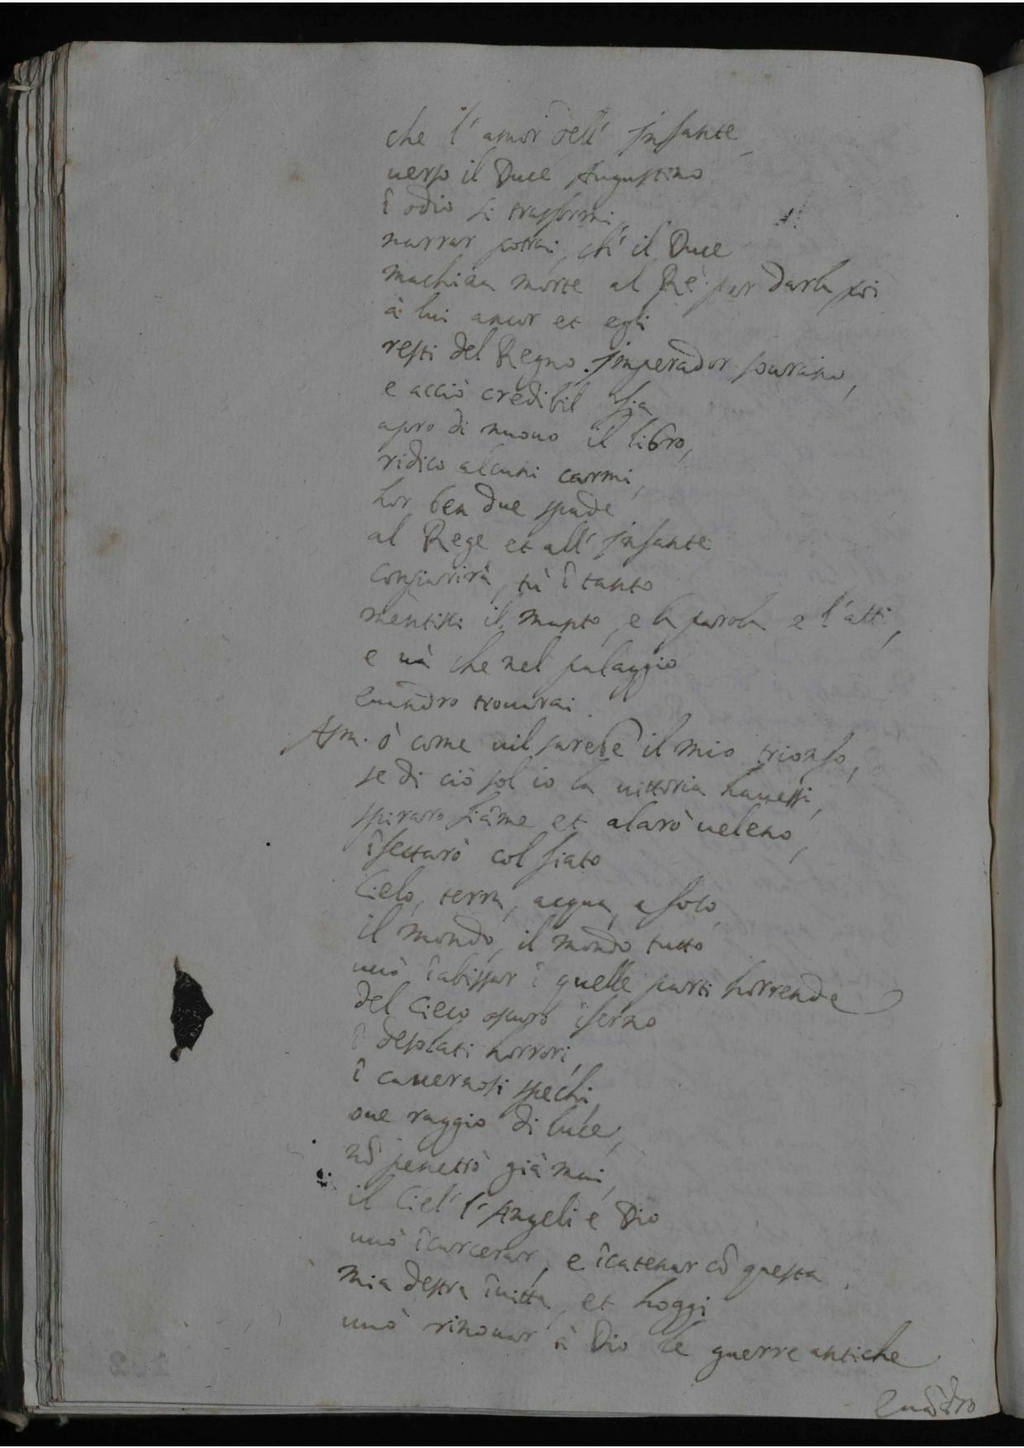 che l' amor dell' infante,
verso il Duce Augustino
î odio si trasformi,
narrar potrai, ch' il Duce
machina morte al Rè per darla poi
à lui ancor et egli
resti del Regno imperador sourano,
e acciò credibil sia,
apro di nuouo il libro,
ridico alcuni carmi,
hor ben due spade
al Rege et all' infante
tù î tanto
mentisci il manto, e la parola e l'atti,
e và che nel palaggio
Euandro trouarai.
Asm. ò come uil sarebe il mio trionfo,
se di ciò sol io la uittoria hauessi,
spirarò fiâme et alarò ueleno,
îfettarò col fiato
Cielo, terra, acqua, e foco,
il mondo, il mondo tutto
uuò îabissar î quelle parti horrende
del Cieco oscuro îferno
î desolati horrori,
î cauernosi spechi,
oue raggio di luce,
nõ penetrò già mai,
il Ciel' l' Angeli e Dio
uuò îcarcerar, e îcatenar cõ questa
mia destra îuitta, et hoggi
uuò rinouar à Dio le guerre antiche
Euãdro